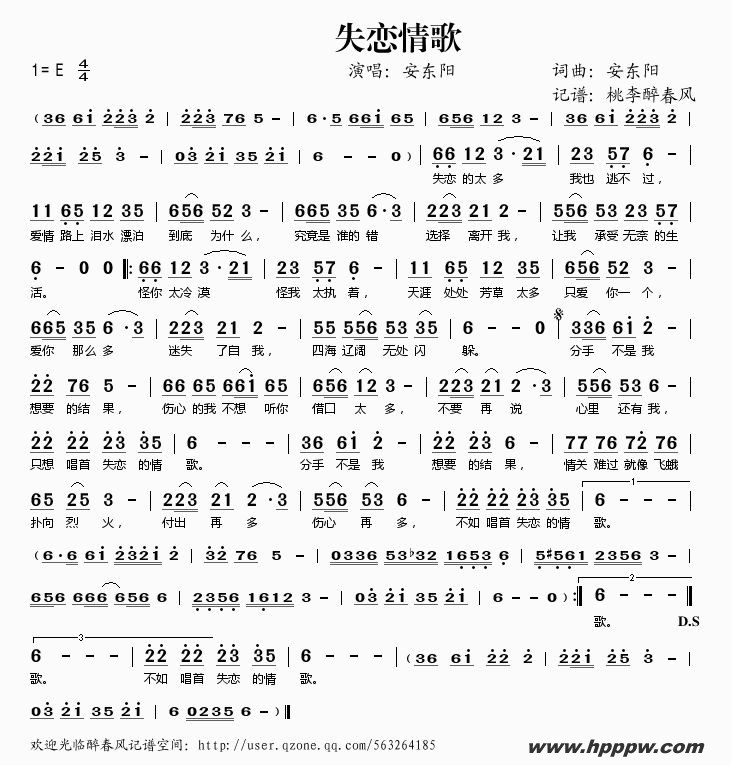 失恋情歌
1= E 4/4 演唱：安东阳 词曲：安东阳
记谱：桃李醉春风
（36 6i 223 2 | 223 76 5 - | 6·5 66i 65 | 656 12 3 - | 36 6i 223 2 |
22i 25 3 - | 03 2i 35 2i | 6 - - 0）| 66 12 3·21 | 23 57 6 - |
失恋 的太 多 我也 逃不 过，
11 65 12 35 | 656 52 3 - | 665 35 6·3 | 223 21 2 - | 556 53 23 57 |
爱情 路上 泪水 漂泊 到底 为什 么， 究竟 是谁 的错 选择 离开 我， 让我 承受 无奈 的生
6 - 0 0 ‖: 66 12 3·21 | 23 57 6 - | 11 65 12 35 | 656 52 3 - |
活。 怪你 太冷 漠 怪我 太执 着， 天涯 处处 芳草 太多 只爱 你一 个，
665 35 6·3 | 223 21 2 - | 55 556 53 35 | 6 - - 0 | 336 6i 2 - |
爱你 那么 多 迷失 了自 我， 四海 辽阔 无处 闪 躲。 分手 不是 我
22 76 5 - | 66 65 66i 65 | 656 12 3 - | 223 21 2·3 | 556 53 6 - |
想要 的结 果， 伤心 的我 不想 听你 借口 太 多， 不要 再 说 心里 还有 我，
22 22 23 35 | 6 - - - | 36 6i 2 - | 22 23 6 - | 77 76 72 76 |
只想 唱首 失恋 的情 歌。 分手 不是 我 想要 的结 果， 情关 难过 就像 飞蛾
65 25 3 - | 223 21 2·3 | 556 53 6 - | 22 22 23 35 | 1 6 - - - |
扑向 烈 火， 付出 再 多 伤心 再 多， 不如 唱首 失恋 的情 歌。
（6·6 6i 232i 2 | 32 76 5 - | 0336 53♭32 1653 6 | 5#561 2356 3 - |
656 656 666 656 6 | 2356 1612 3 - | 03 2i 35 2i | 6 - - 0）:‖ 2 6 - - - ‖
歌。 D.S
3 6 - - - | 22 22 23 35 | 6 - - - |（36 6i 22 2 | 22i 25 3 - |
歌。 不如 唱首 失恋 的情 歌。
03 2i 35 2i | 6 0235 6 -）‖
欢迎光临醉春风记谱空间：http://user.qzone.qq.com/563264185
www.hpppw.com